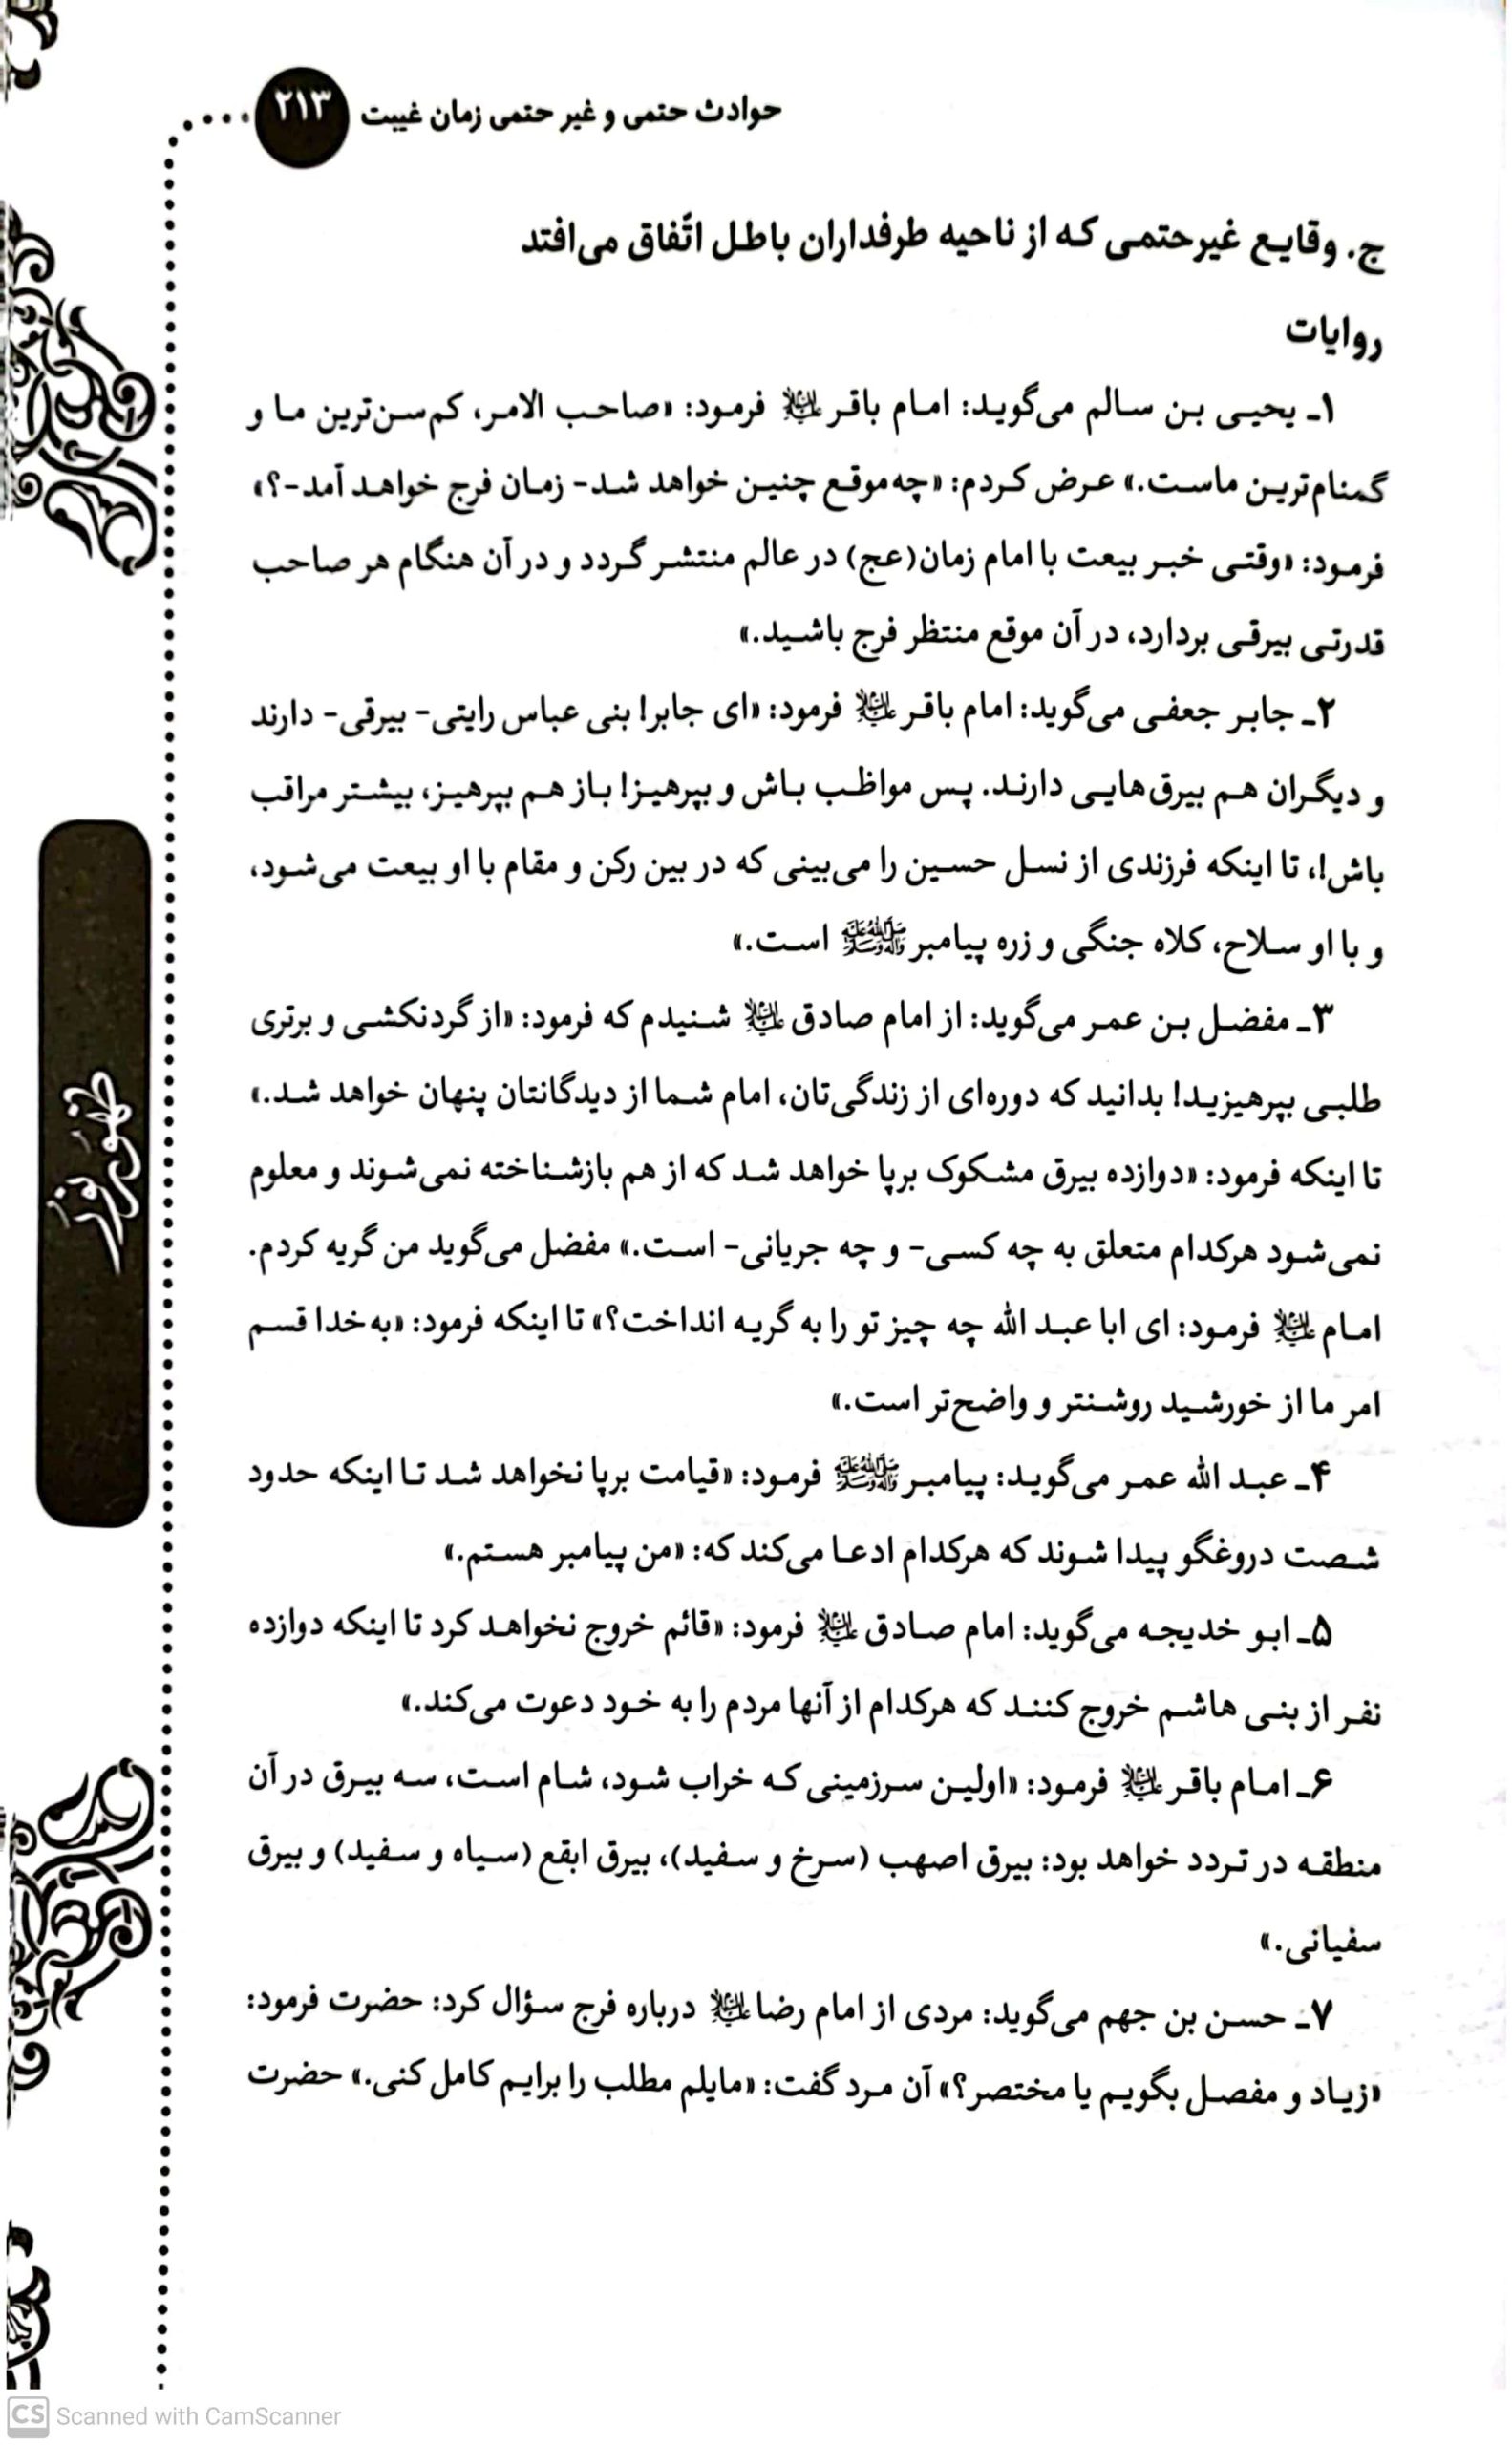 حوادث حتمی و غیر حتمی زمان غیبت ۲۱۳
ج. وقایع غیرحتمی که از ناحیه طرفداران باطل اتّفاق می‌افتد
روایات
۱ـ یحیی بن سالم می‌گوید: امام باقر علیه‌السلام فرمود: «صاحب الامر، کم‌سن‌ترین ما و
گمنام‌ترین ماست.» عرض کردم: «چه‌موقع چنین خواهد شد- زمان فرج خواهد آمد-؟»
فرمود: «وقتی خبر بیعت با امام زمان(عج) در عالم منتشر گردد و در آن هنگام هر صاحب
قدرتی بیرقی بردارد، در آن موقع منتظر فرج باشید.»
۲ـ جابر جعفی می‌گوید: امام باقر علیه‌السلام فرمود: «ای جابر! بنی عباس رایتی- بیرقی- دارند
و دیگران هم بیرق‌هایی دارند. پس مواظب باش و بپرهیز! باز هم بپرهیز، بیشتر مراقب
باش!، تا اینکه فرزندی از نسل حسین را می‌بینی که در بین رکن و مقام با او بیعت می‌شود،
و با او سلاح، کلاه جنگی و زره پیامبر ﷺ است.»
۳ـ مفضل بن عمر می‌گوید: از امام صادق علیه‌السلام شنیدم که فرمود: «از گردنکشی و برتری
طلبی بپرهیزید! بدانید که دوره‌ای از زندگی‌تان، امام شما از دیدگانتان پنهان خواهد شد.»
تا اینکه فرمود: «دوازده بیرق مشکوک برپا خواهد شد که از هم بازشناخته نمی‌شوند و معلوم
نمی‌شود هرکدام متعلق به چه کسی- و چه جریانی- است.» مفضل می‌گوید من گریه کردم.
امام علیه‌السلام فرمود: ای ابا عبد الله چه چیز تو را به گریه انداخت؟» تا اینکه فرمود: «به خدا قسم
امر ما از خورشید روشنتر و واضح‌تر است.»
۴ـ عبد الله عمر می‌گوید: پیامبر ﷺ فرمود: «قیامت برپا نخواهد شد تا اینکه حدود
شصت دروغگو پیدا شوند که هرکدام ادعا می‌کند که: «من پیامبر هستم.»
۵ـ ابو خدیجه می‌گوید: امام صادق علیه‌السلام فرمود: «قائم خروج نخواهد کرد تا اینکه دوازده
نفر از بنی هاشم خروج کنند که هرکدام از آنها مردم را به خود دعوت می‌کند.»
۶ـ امام باقر علیه‌السلام فرمود: «اولین سرزمینی که خراب شود، شام است، سه بیرق در آن
منطقه در تردد خواهد بود: بیرق اصهب (سرخ و سفید)، بیرق ابقع (سیاه و سفید) و بیرق
سفیانی.»
۷ـ حسن بن جهم می‌گوید: مردی از امام رضا علیه‌السلام درباره فرج سؤال کرد: حضرت فرمود:
«زیاد و مفصل بگویم یا مختصر؟» آن مرد گفت: «مایلم مطلب را برایم کامل کنی.» حضرت
ظهور نور
CS Scanned with CamScanner